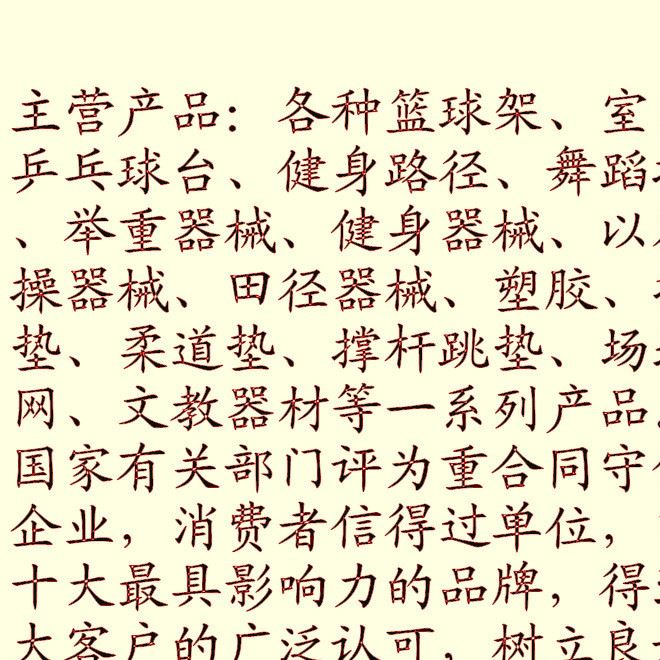 主营产品：各种篮球架、室
乒乓球台、健身路径、舞蹈
、举重器械、健身器械、以
操器械、田径器械、塑胶、
垫、柔道垫、撑杆跳垫、场
网、文教器材等一系列产品
国家有关部门评为重合同守
企业，消费者信得过单位，
十大最具影响力的品牌，得
大客户的广泛认可，树立良